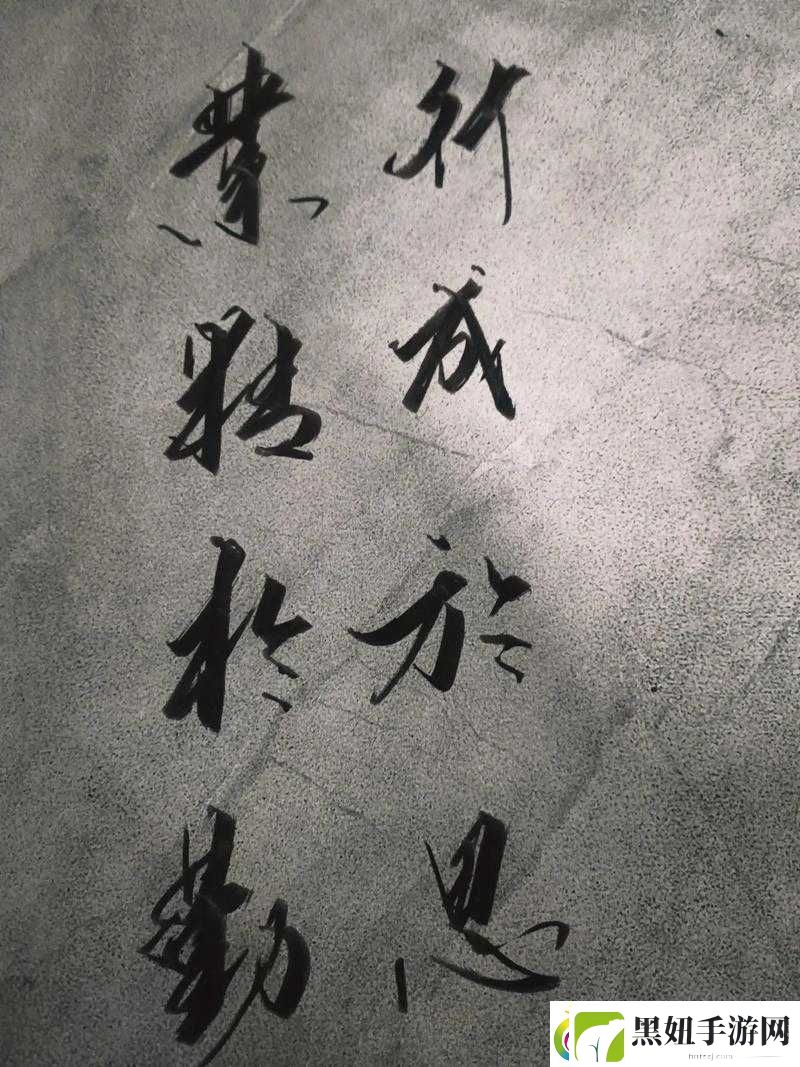 業精於勤
行成於思
黑妞手游网